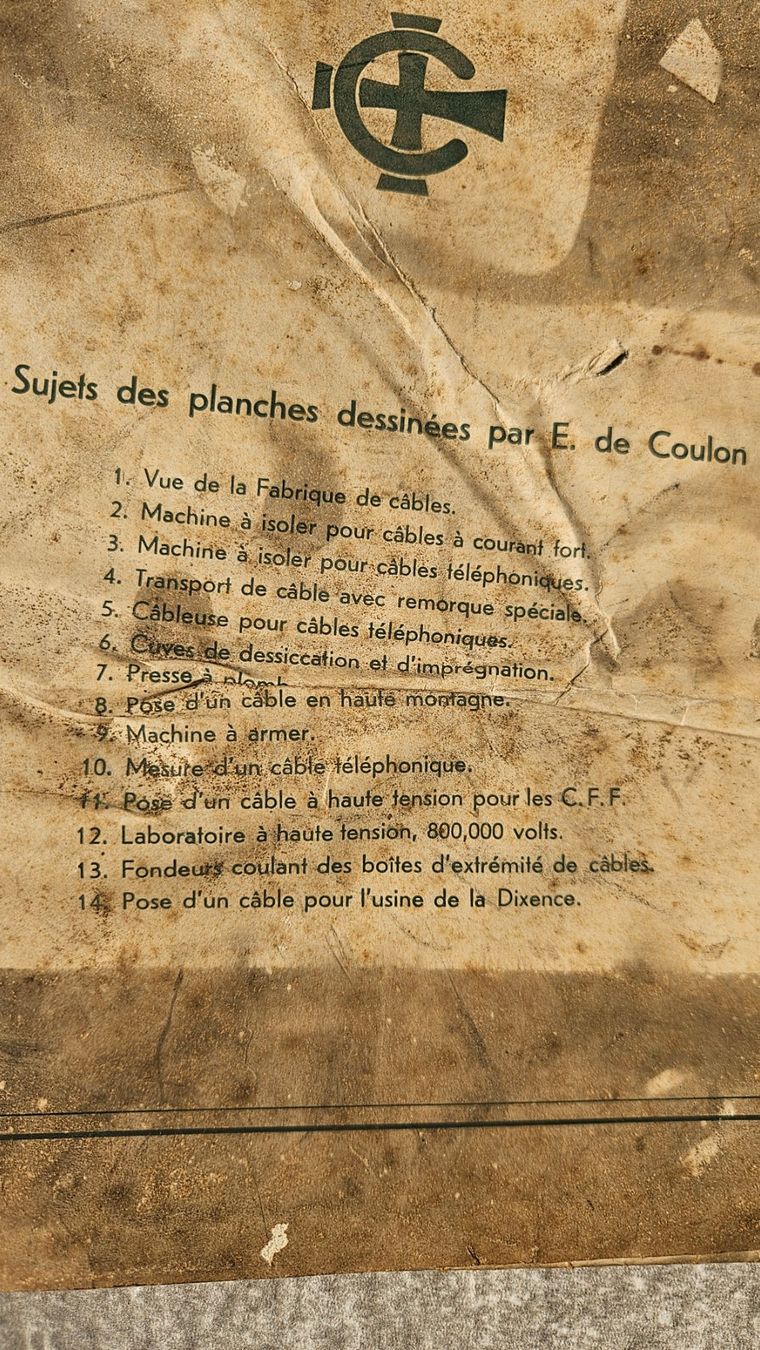 Sujets des planches dessinées par E. de Coulon
1. Vue de la Fabrique de câbles.
2. Machine à isoler pour câbles à courant fort.
3. Machine à isoler pour câbles téléphoniques.
4. Transport de câble avec remorque spéciale.
5. Câbleuse pour câbles téléphoniques.
6. Cuves de dessiccation et d'imprégnation.
7. Presse à plomb
8. Pose d'un câble en haute montagne.
9. Machine à armer.
10. Mesure d'un câble téléphonique.
11. Pose d'un câble à haute tension pour les C.F.F.
12. Laboratoire à haute tension, 800,000 volts.
13. Fondeurs coulant des boîtes d'extrémité de câbles.
14. Pose d'un câble pour l'usine de la Dixence.